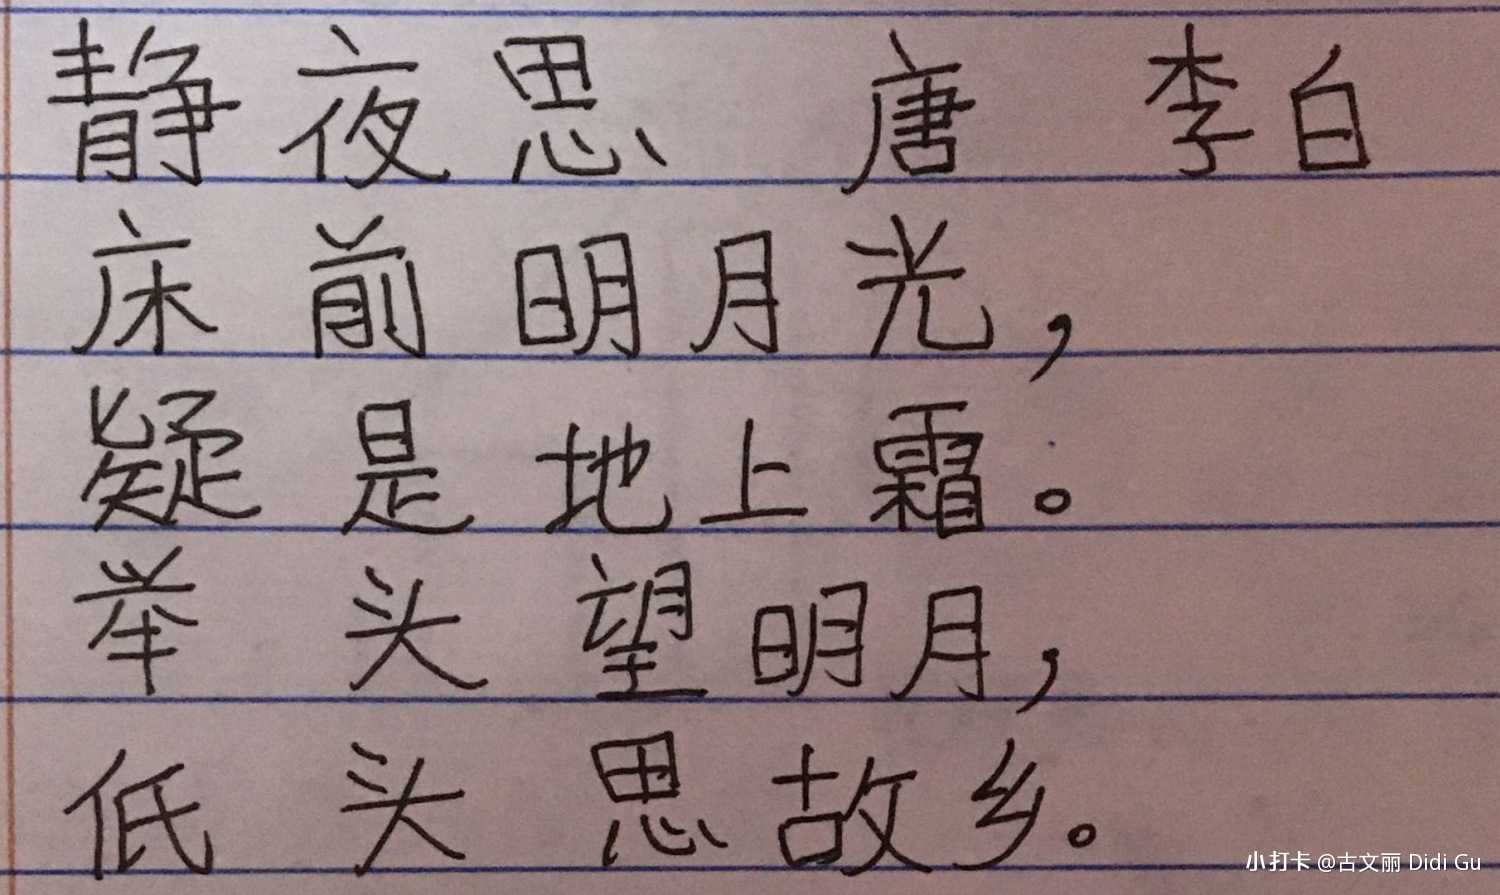 静夜思 唐 李白
床前明月光，
疑是地上霜。
举头望明月，
低头思故乡。
小打卡 @古文丽 Didi Gu